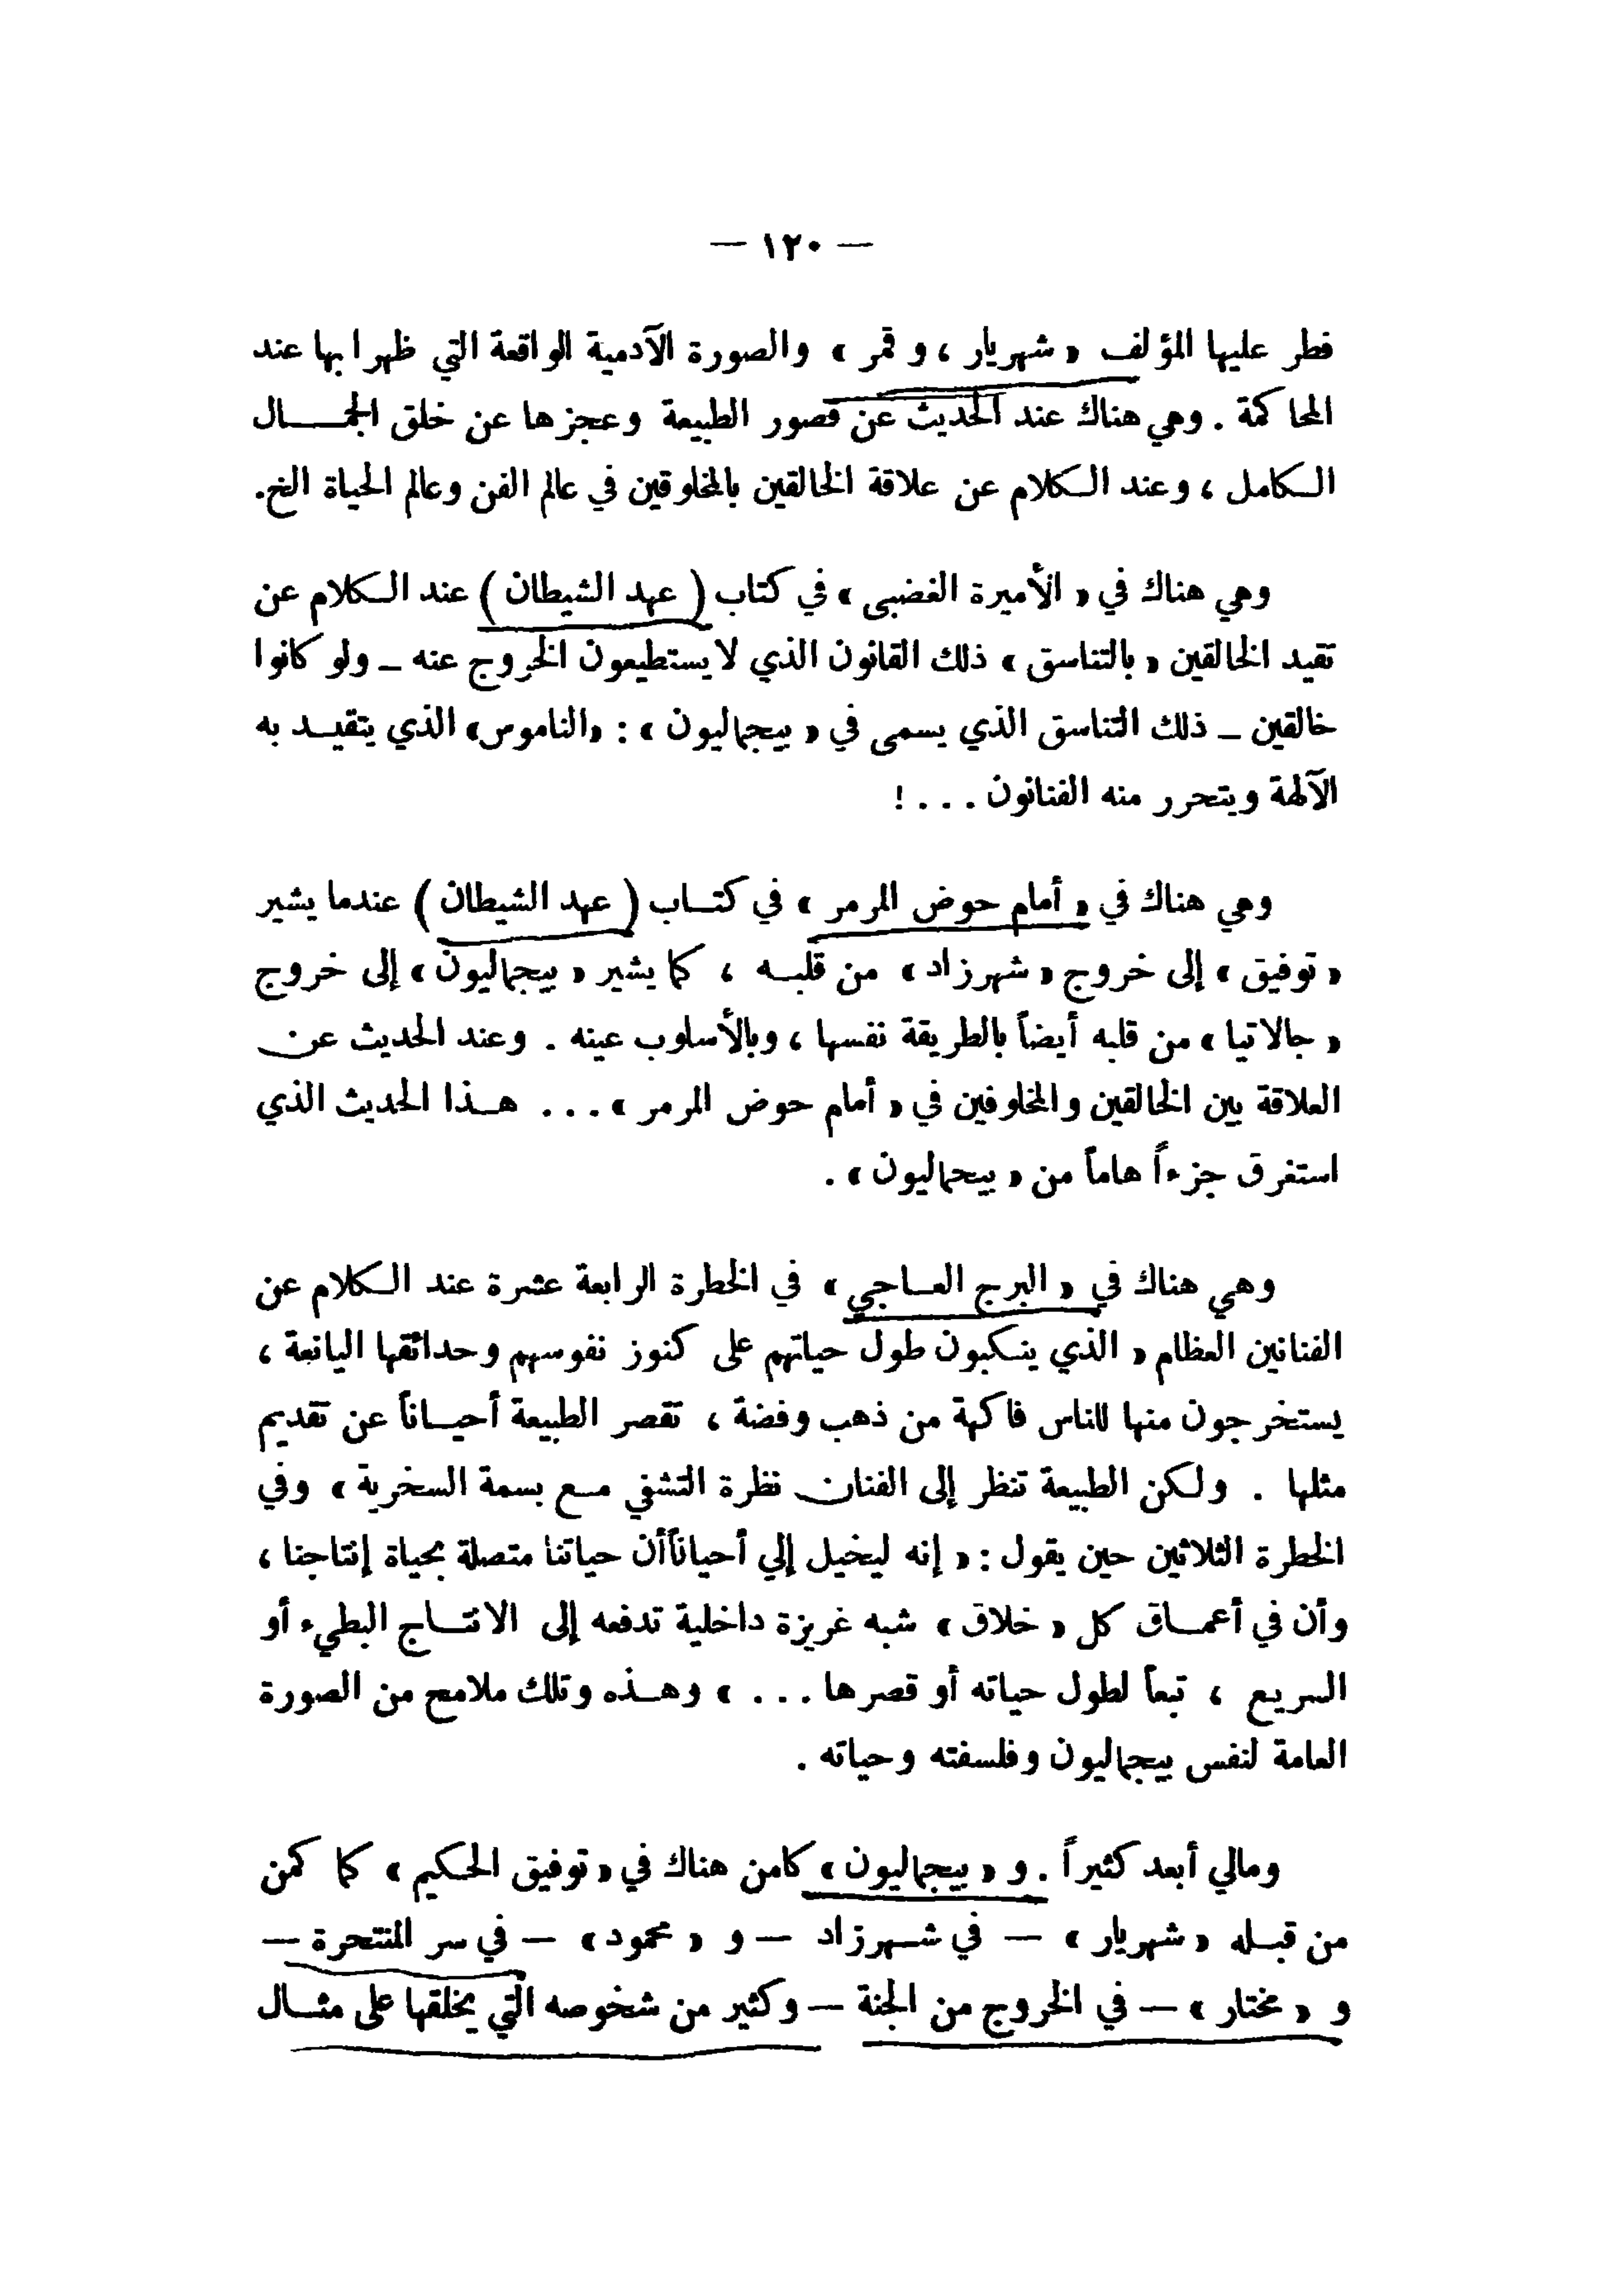 — ١٢٠ —
فطر عليها المؤلف « شهريار ، و قمر » والصورة الآدمية الواقعة التي ظهرا بها عند
المحاكمة . وهي هناك عند الحديث عن قصور الطبيعة وعجزها عن خلق الجمـــال
الـكامل ، وعند الـكلام عن علاقة الخالقين بالمخلوقين في عالم الفن وعالم الحياة الخ.
وهي هناك في « الأميرة الغضبى » في كتاب ( عهد الشيطان ) عند الـكلام عن
تقيد الخالقين « بالتناسق » ذلك القانون الذي لا يستطيعون الخروج عنه – ولو كانوا
خالقين – ذلك التناسق الذي يسمى في « بيجماليون » : «الناموس» الذي يتقيــد به
الآلهة ويتحرر منه الفنانون . . . !
وهي هناك في « أمام حوض المرمر » في كتــاب ( عهد الشيطان ) عندما يشير
« توفيق » إلى خروج « شهرزاد » من قلبــه ، كما يشير « بيجماليون » إلى خروج
« جالاتيا » من قلبه أيضاً بالطريقة نفسها ، وبالأسلوب عينه . وعند الحديث عن
العلاقة بين الخالقين والمخلوفين في « أمام حوض المرمر » . . . هــذا الحديث الذي
استغرق جزءاً هاماً من « بيحماليون » .
وهي هناك في « البرج العــاجي » في الخطرة الرابعة عشرة عند الـكلام عن
الفنانين العظام « الذي ينـكبون طول حياتهم على كنوز نفوسهم وحدائقها اليانعة ،
يستخرجون منها للناس فاكهة من ذهب وفضة ، تقصر الطبيعة أحيــاناً عن تقديم
مثلها . ولـكن الطبيعة تنظر إلى الفنان نظرة التشفي مــع بسمة السخرية » وفي
الخطرة الثلاثين حين يقول : « إنه ليخيل إلي أحياناً أن حياتنا متصلة بحياة إنتاجنا ،
وأن في أعمــاق كل « خلاق » شبه غريزة داخلية تدفعه إلى الانتــاج البطيء أو
السريع ، تبعاً لطول حياته أو قصرها . . . » وهــذه وتلك ملامح من الصورة
العامة لنفس بيجماليون وفلسفته وحياته .
ومالي أبعد كثيراً . و « بيجماليون » كامن هناك في « توفيق الحـكيم » كما كمن
من قبــله « شهريار » — في شــهرزاد — و « محمود » — في سر المنتحرة —
و « مختار » — في الخروج من الجنة — وكثير من شخوصه التي يخلقها على مثــال